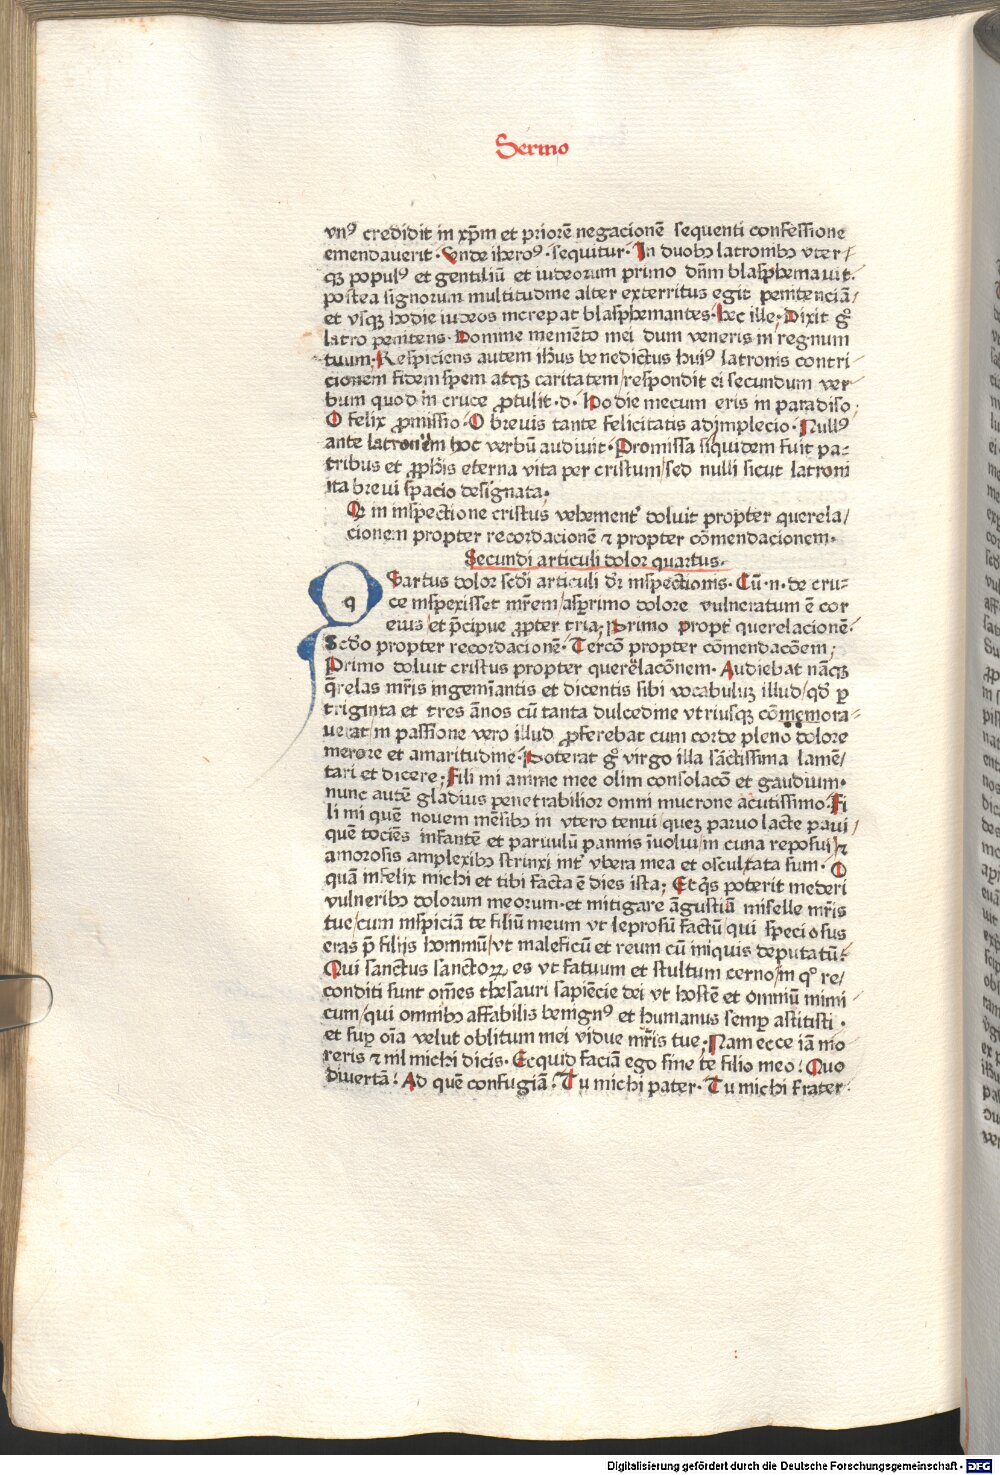 Sermo
vnꝰ credidit in xp̄m et priorē negacionē sequenti confessione
emendauerit. Vnde iherōꝰ. sequitur. In duobꝫ latronibꝫ vter/
qꝫ populꝰ et gentiliū et iudeorum primo dn̄m blasphemauit.
postea signorum multitudine alter exterritus egit penitenciā/
et vsqꝫ hodie iudeos increpat blasphemantes. hec ille. Dixit gͦ
latro penitens. Domine memēto mei dum veneris in regnum
tuum. Respiciens autem ihūs benedictus huiꝰ latronis contri
cionem fidem spem atqꝫ caritatem/respondit ei secundum ver
bum quod in cruce ꝓtulit .d. Hodie mecum eris in paradiso;
O felix ꝓmissio. O breuis tante felicitatis adimplecio. Nullꝰ
ante latronem hoc verbū audiuit. Promissa siquidem fuit pa=
tribus et ꝓphīs eterna vita per cristum/sed nulli sicut latroni
ita breui spacio designata.
Qꝫ in inspectione cristus vehement̄ doluit propter querela/
cionem propter recordacionē ⁊ propter cōmendacionem.
Secundi articuli dolor quartus.
q Vartus dolor scd̄i articuli dr̄ inspectionis. Cū .n. de cru=
ce inspexisset mr̄em/asp̄rimo dolore vulneratum ē cor
eius/et p̄cipue ꝓpter tria; Primo propt̄ querelacionē.
Scd̄o propter recordacionē. Tercō propter cōmendacōem;
Primo doluit cristus propter querelacōnem. Audiebat nāqꝫ
q̄relas mr̄is ingemiāntis et dicentis sibi vocabuluꝫ illud/qd̄ p
triginta et tres ānos cū tanta dulcedine vtriusqꝫ cōmemora=
uerat/in passione vero illud ꝓferebat cum corde pleno dolore
merore et amaritudine. Poterat gͦ virgo illa sānctissima lamē/
tari et dicere; Fili mi anime mee olim consolacō et gaudium.
nunc autē gladius penetrabilior omni mucrone acutissimo. Fi
li mi quē nouem mēsibꝫ in vtero tenui/queꝫ paruo lacte paui/
quē tociēs infantē et paruulū pannis īuolui/in cuna reposui/⁊
amorosis amplexibꝫ strinxi int̄ vbera mea et oscultata sum. O
quā infelix michi et tibi facta ē dies ista; Et q̄s poterit mederi
vulneribꝫ dolorum meorum.et mitigare āgustiā miselle mr̄is
tue/cum inspiciā te filiū meum vt leprosū factū/qui speciosus
eras p̄ filijs hominū/vt maleficū et reum cū iniquis deputatū.
Qui sanctus sanctoꝝ es vt fatuum et stultum cerno/in qͦ re/
conditi sunt om̄es thesauri sapiēcie dei vt hostē et omniū inimi
cum/qui omnibꝫ affabilis benignꝰ et humanus semꝑ astitisti.
et suꝑ oīa velut oblitum mei vidue mr̄is tue; Nam ecce iā mo
reris ⁊ nīl michi dicis. Ecquid faciā ego sine te filio meo. Quo
diuertā. Ad quē confugiā. Tu michi pater. Tu michi frater.
Digitalisierung gefördert durch die Deutsche Forschungsgemeinschaft - DFG